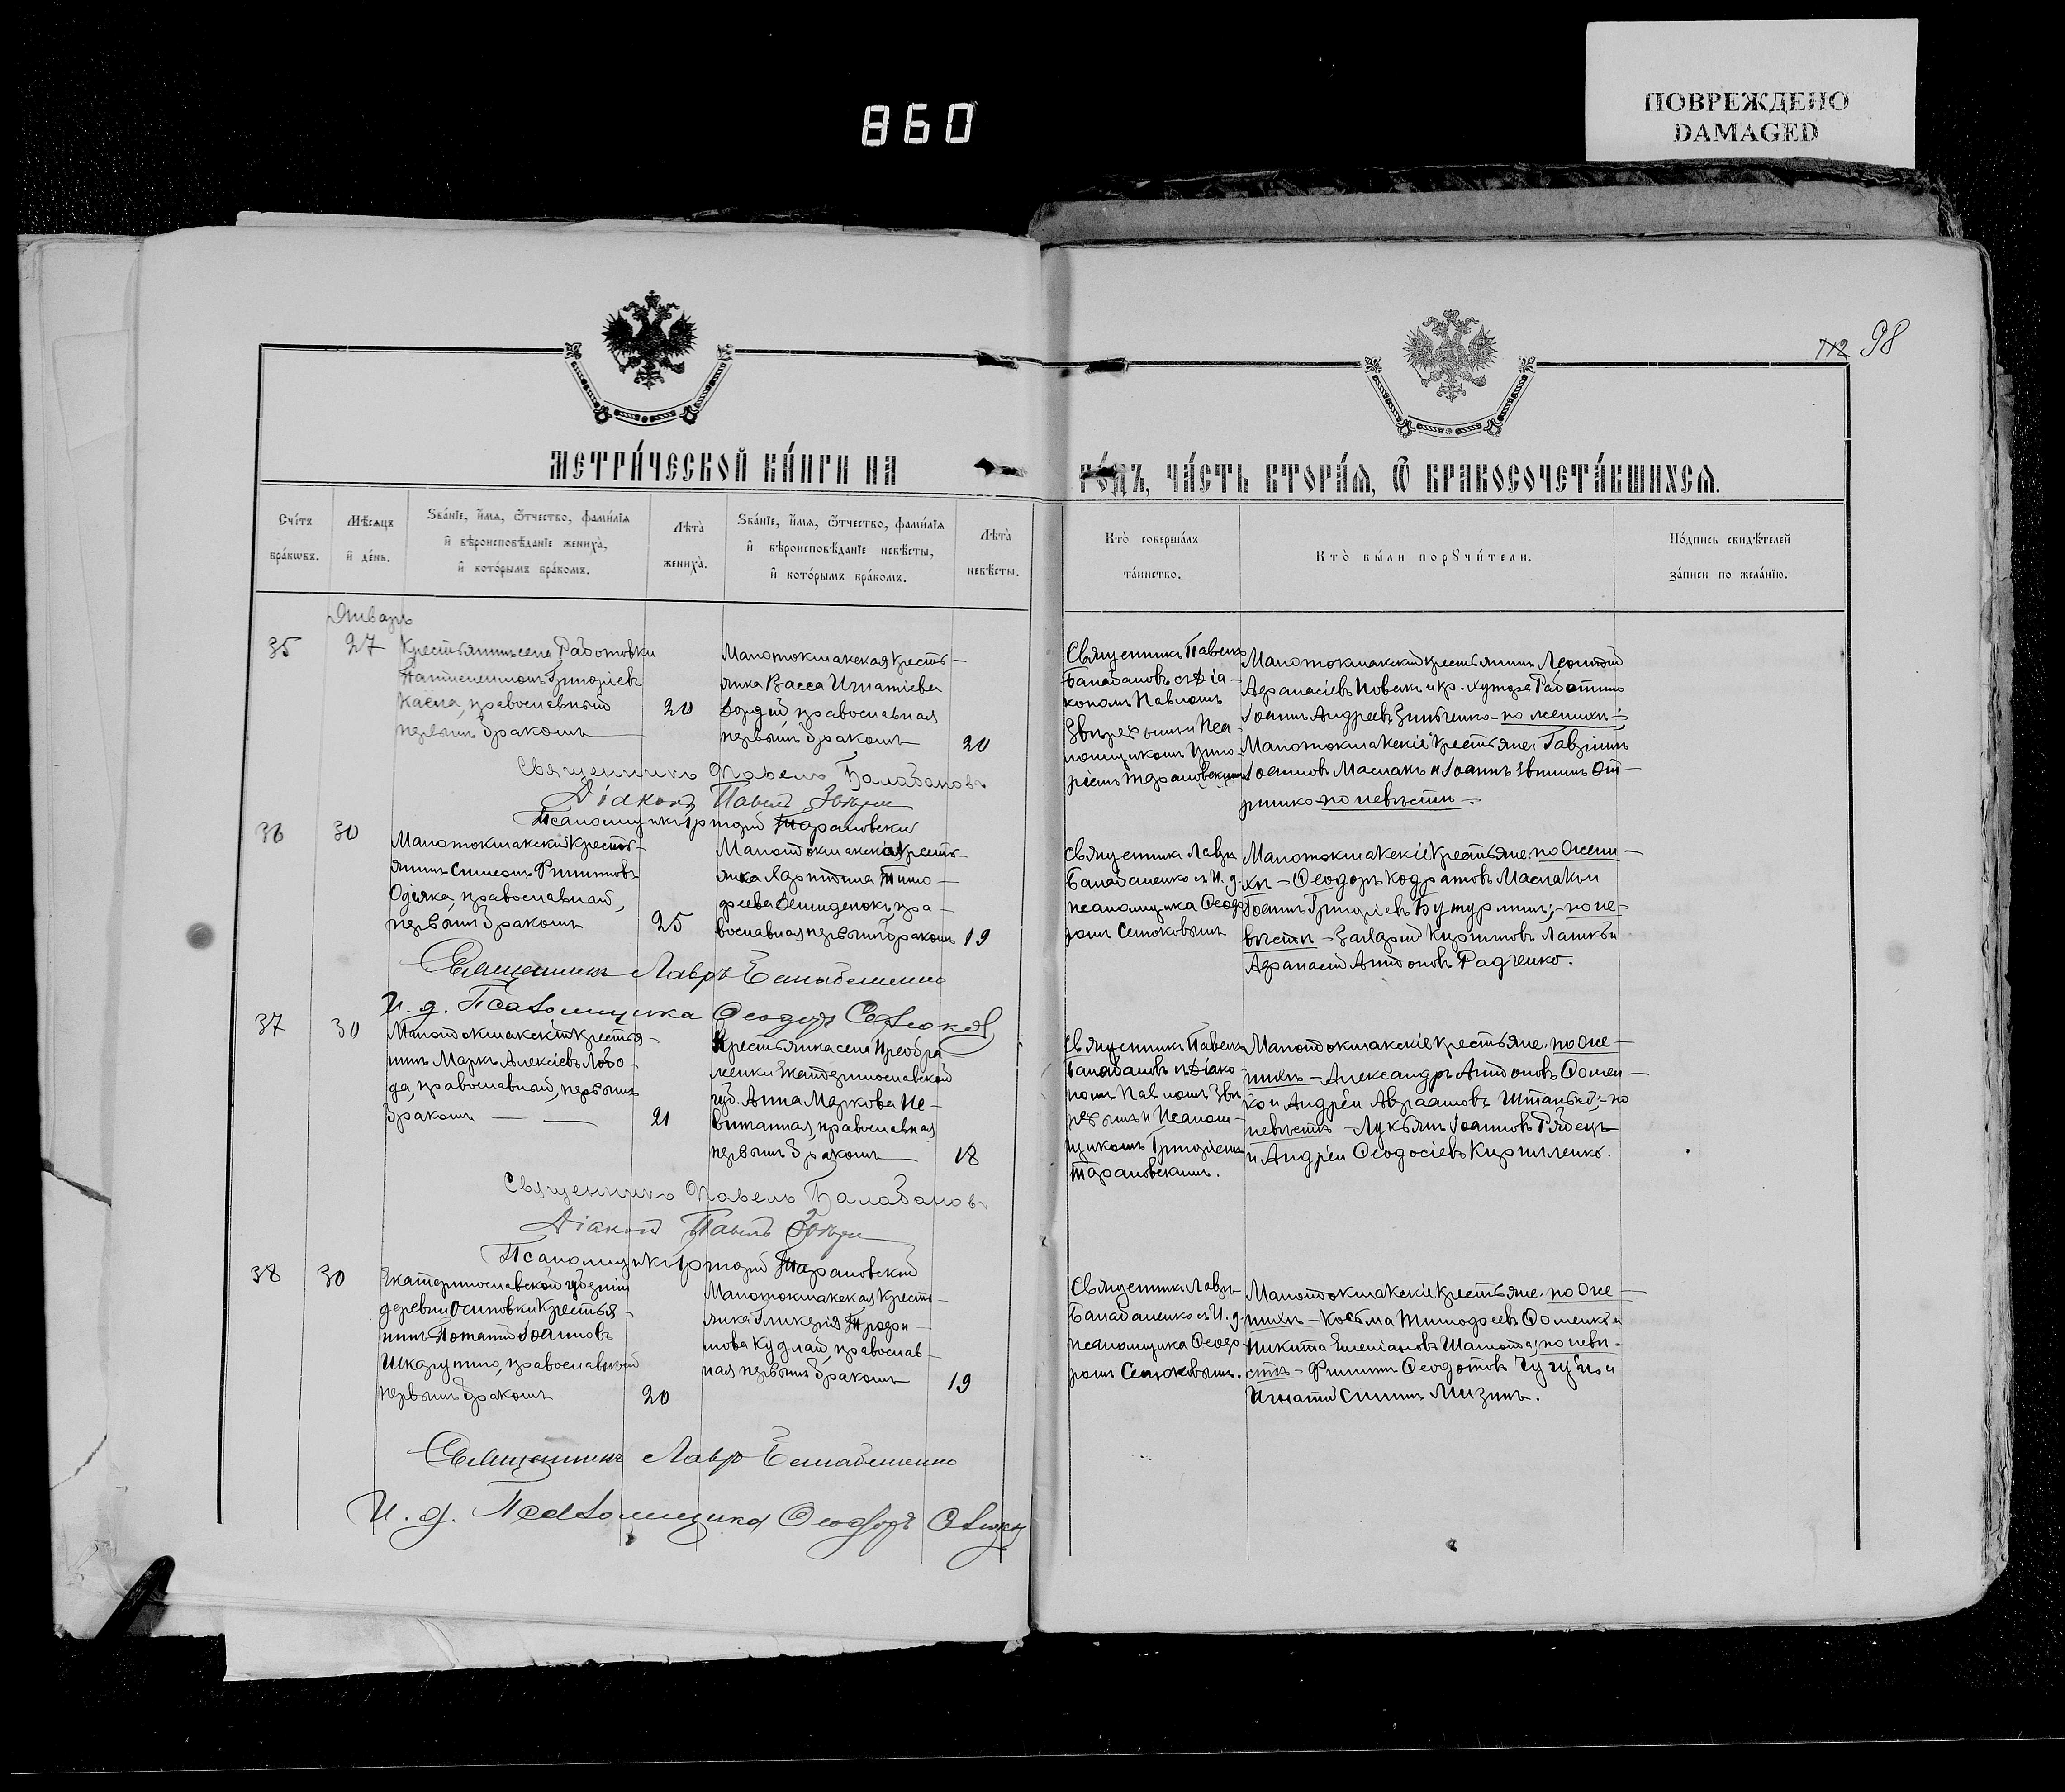 ПОВРЕЖДЕНО
DAMAGED
860
112 98
МЕТРИ́ЧЕСКОЙ КНИ́ГИ НА
ГО́ДЪ, ЧА́СТЬ ВТОРА́Я, Ѿ БРАКОСОЧЕТА́ВШИХСЯ.
Сче́тъ бра́кѡвъ.
Мѣ́сяцъ и҆ де́нь.
Ѕва́нїе, и҆́мя, ѻ҆́тчество, фами́лїя и҆ вѣроисповѣ́данїе жениха̀, и҆ кото́рымъ бра́комъ.
Лѣта̀ жениха̀.
Ѕва́нїе, и҆́мя, ѻ҆́тчество, фами́лїя и҆ вѣроисповѣ́данїе невѣ́сты, и҆ кото́рымъ бра́комъ.
Лѣта̀ невѣ́сты.
Кто̀ соверша́лъ та́инство.
Кто̀ бы́ли порꙋчи́тели.
По́дпись свидѣ́телей за́писи по жела́нїю.
Январь
35
27
Крестьянинъ села Работовки
Пантелеимонъ Григоріевъ
православный
первымъ бракомъ
20
Малотокмакская кресть-
янка Васса Игнатіева
православная
первымъ бракомъ
20
Священникъ Павелъ
Балабановъ съ діа-
кономъ Павломъ
Звѣревымъ и Пса-
ломщикомъ Григо-
ріемъ Тарановскимъ
Малотокмакскій крестьянинъ Леонтій
Афанасіевъ Новакъ и кр. хутора
Іоаннъ Андреевъ Зинченко - по женихѣ;
Малотокмакскіе крестьяне: Гавріилъ
Іоанновъ Маслакъ и Іоаннъ
по невѣстѣ.
Священникъ Павелъ Балабановъ
Діаконъ Павелъ Звѣревъ
Псаломщикъ Григорій Тарановскій
36
30
Малотокмакскій кресть-
янинъ Симеонъ Филипповъ
Одіяка, православный,
первымъ бракомъ
25
Малотокмакская кресть-
янка Харитина Тимо-
феева пра-
вославная первымъ бракомъ
19
Священникъ Лавръ
Балабаненко съ И. д.
псаломщика Ѳеодо-
ромъ Сенюковымъ
Малотокмакскіе крестьяне: по жени-
хѣ - Ѳеодоръ Кодратовъ Маслакъ и
Іоаннъ Григоріевъ Бутурлинъ; - по не-
вѣстѣ - Захарій Кирилловъ Лашко и
Афанасій Антоновъ Радченко.
Священникъ Лавръ Балабаненко
И. д. Псаломщика Ѳеодоръ Сенюковъ
37
30
Малотокмакскій крестья-
нинъ Маркъ Алексіевъ Лобо-
да, православный, первымъ
бракомъ
21
Крестьянка села Преобра
женки Екатеринославской
губ. Анна Маркова Не-
витанная, православная
первымъ бракомъ
18
Священникъ Павелъ
Балабановъ съ діако-
номъ Павломъ Звѣ
ревымъ и Псалом-
щикомъ Григоріемъ
Тарановскимъ.
Малотокмакскіе крестьяне: по же-
нихѣ - Александръ Антоновъ Ѳомен-
ко и Андрей Авраамовъ Штанько; - по
невѣстѣ - Лукьянъ Іоанновъ Рябець
и Андрей Ѳеодосіевъ Кириленко.
Священникъ Павелъ Балабановъ
Діаконъ Павелъ Звѣревъ
Псаломщикъ Григорій Тарановскій
38
30
Екатеринославской губерніи
деревни Осиповки крестья-
нинъ Потапій Іоанновъ
Шкарупило, православный
первымъ бракомъ
20
Малотокмакская кресть-
янка Гликерія Трофи-
мова Кудлай, православ-
ная первымъ бракомъ
19
Священникъ Лавръ
Балабаненко съ И. д.
псаломщика Ѳеодо-
ромъ Сенюковымъ.
Малотокмакскіе крестьяне: по же-
нихѣ - Косьма Тимофеевъ Ѳоменко и
Никита Емеліановъ Шамота; по невѣ-
стѣ - Филиппъ Ѳеодотовъ и
Игнатій Силинъ Мизинъ.
Священникъ Лавръ Балабаненко
И. д. Псаломщика Ѳеодоръ Сенюковъ